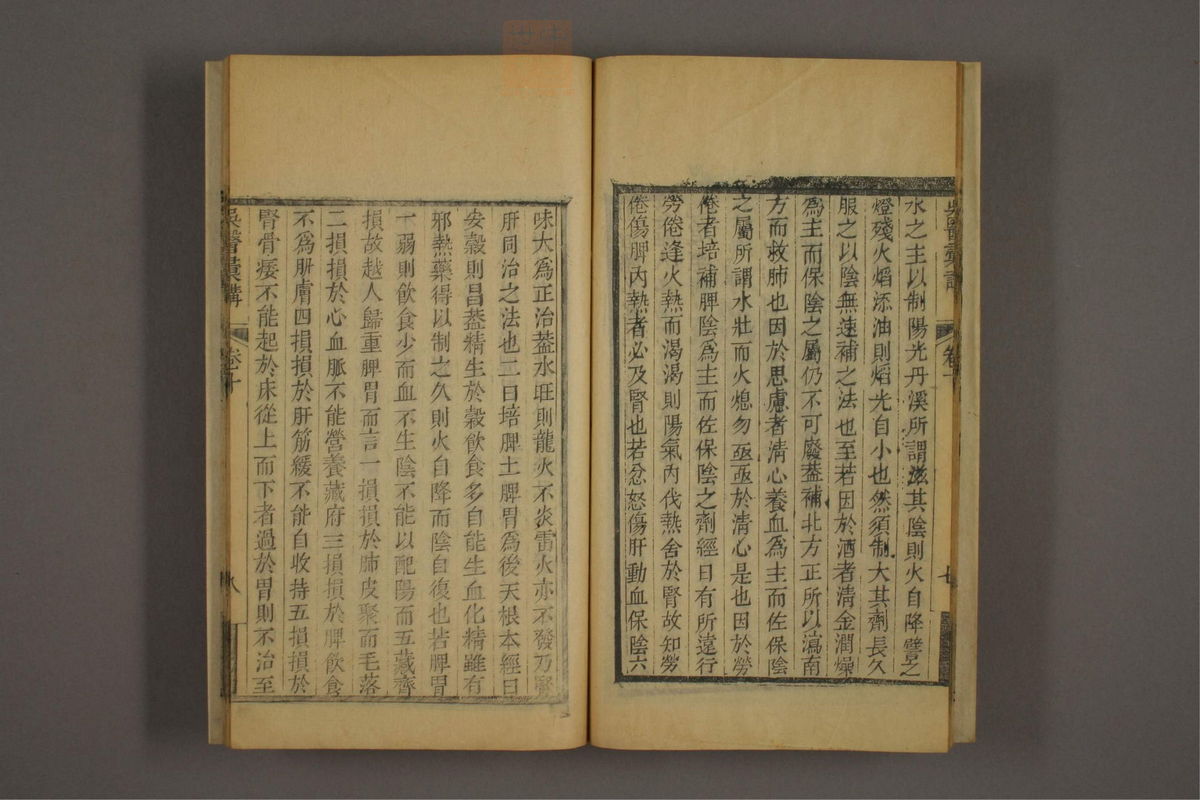 水之主以制陽光丹溪所謂滋其陰則火自降譬之
燈殘火焰添油則焰光自小也然須制大其劑長久
服之以陰無速補之法也至若因於酒者清金潤燥
為主而保陰之屬仍不可廢葢補北方正所以瀉南
方而救肺也因於思慮者清心養血為主而佐保陰
之屬所謂水壯而火熄勿亟亟於清心是也因於勞
倦者培補脾陰為主而佐保陰之劑經曰有所遠行
勞倦逢火熱而渴渴則陽氣內伐熱舍於腎故知勞
倦傷脾內熱者必及腎也若忿怒傷肝動血保陰六
味丸為正治葢水旺則龍火不炎雷火亦不發乃腎
肝同治之法也二曰培脾土脾胃為後天根本經曰
安穀則昌葢精生於穀飲食多自能生血化精雖有
邪熱藥得以制之久則火自降而陰自復也若脾胃
一弱則飲食少而血不生陰不能以配陽而五藏齊
損故越人歸重脾胃而言一損損於肺皮聚而毛落
二損損於心血脈不能營養藏府三損損於脾飲食
不為肌膚四損損於肝筋緩不能自收持五損損於
腎骨痿不能起於床從上而下者過於胃則不治至
吳醫彙講
卷十
八